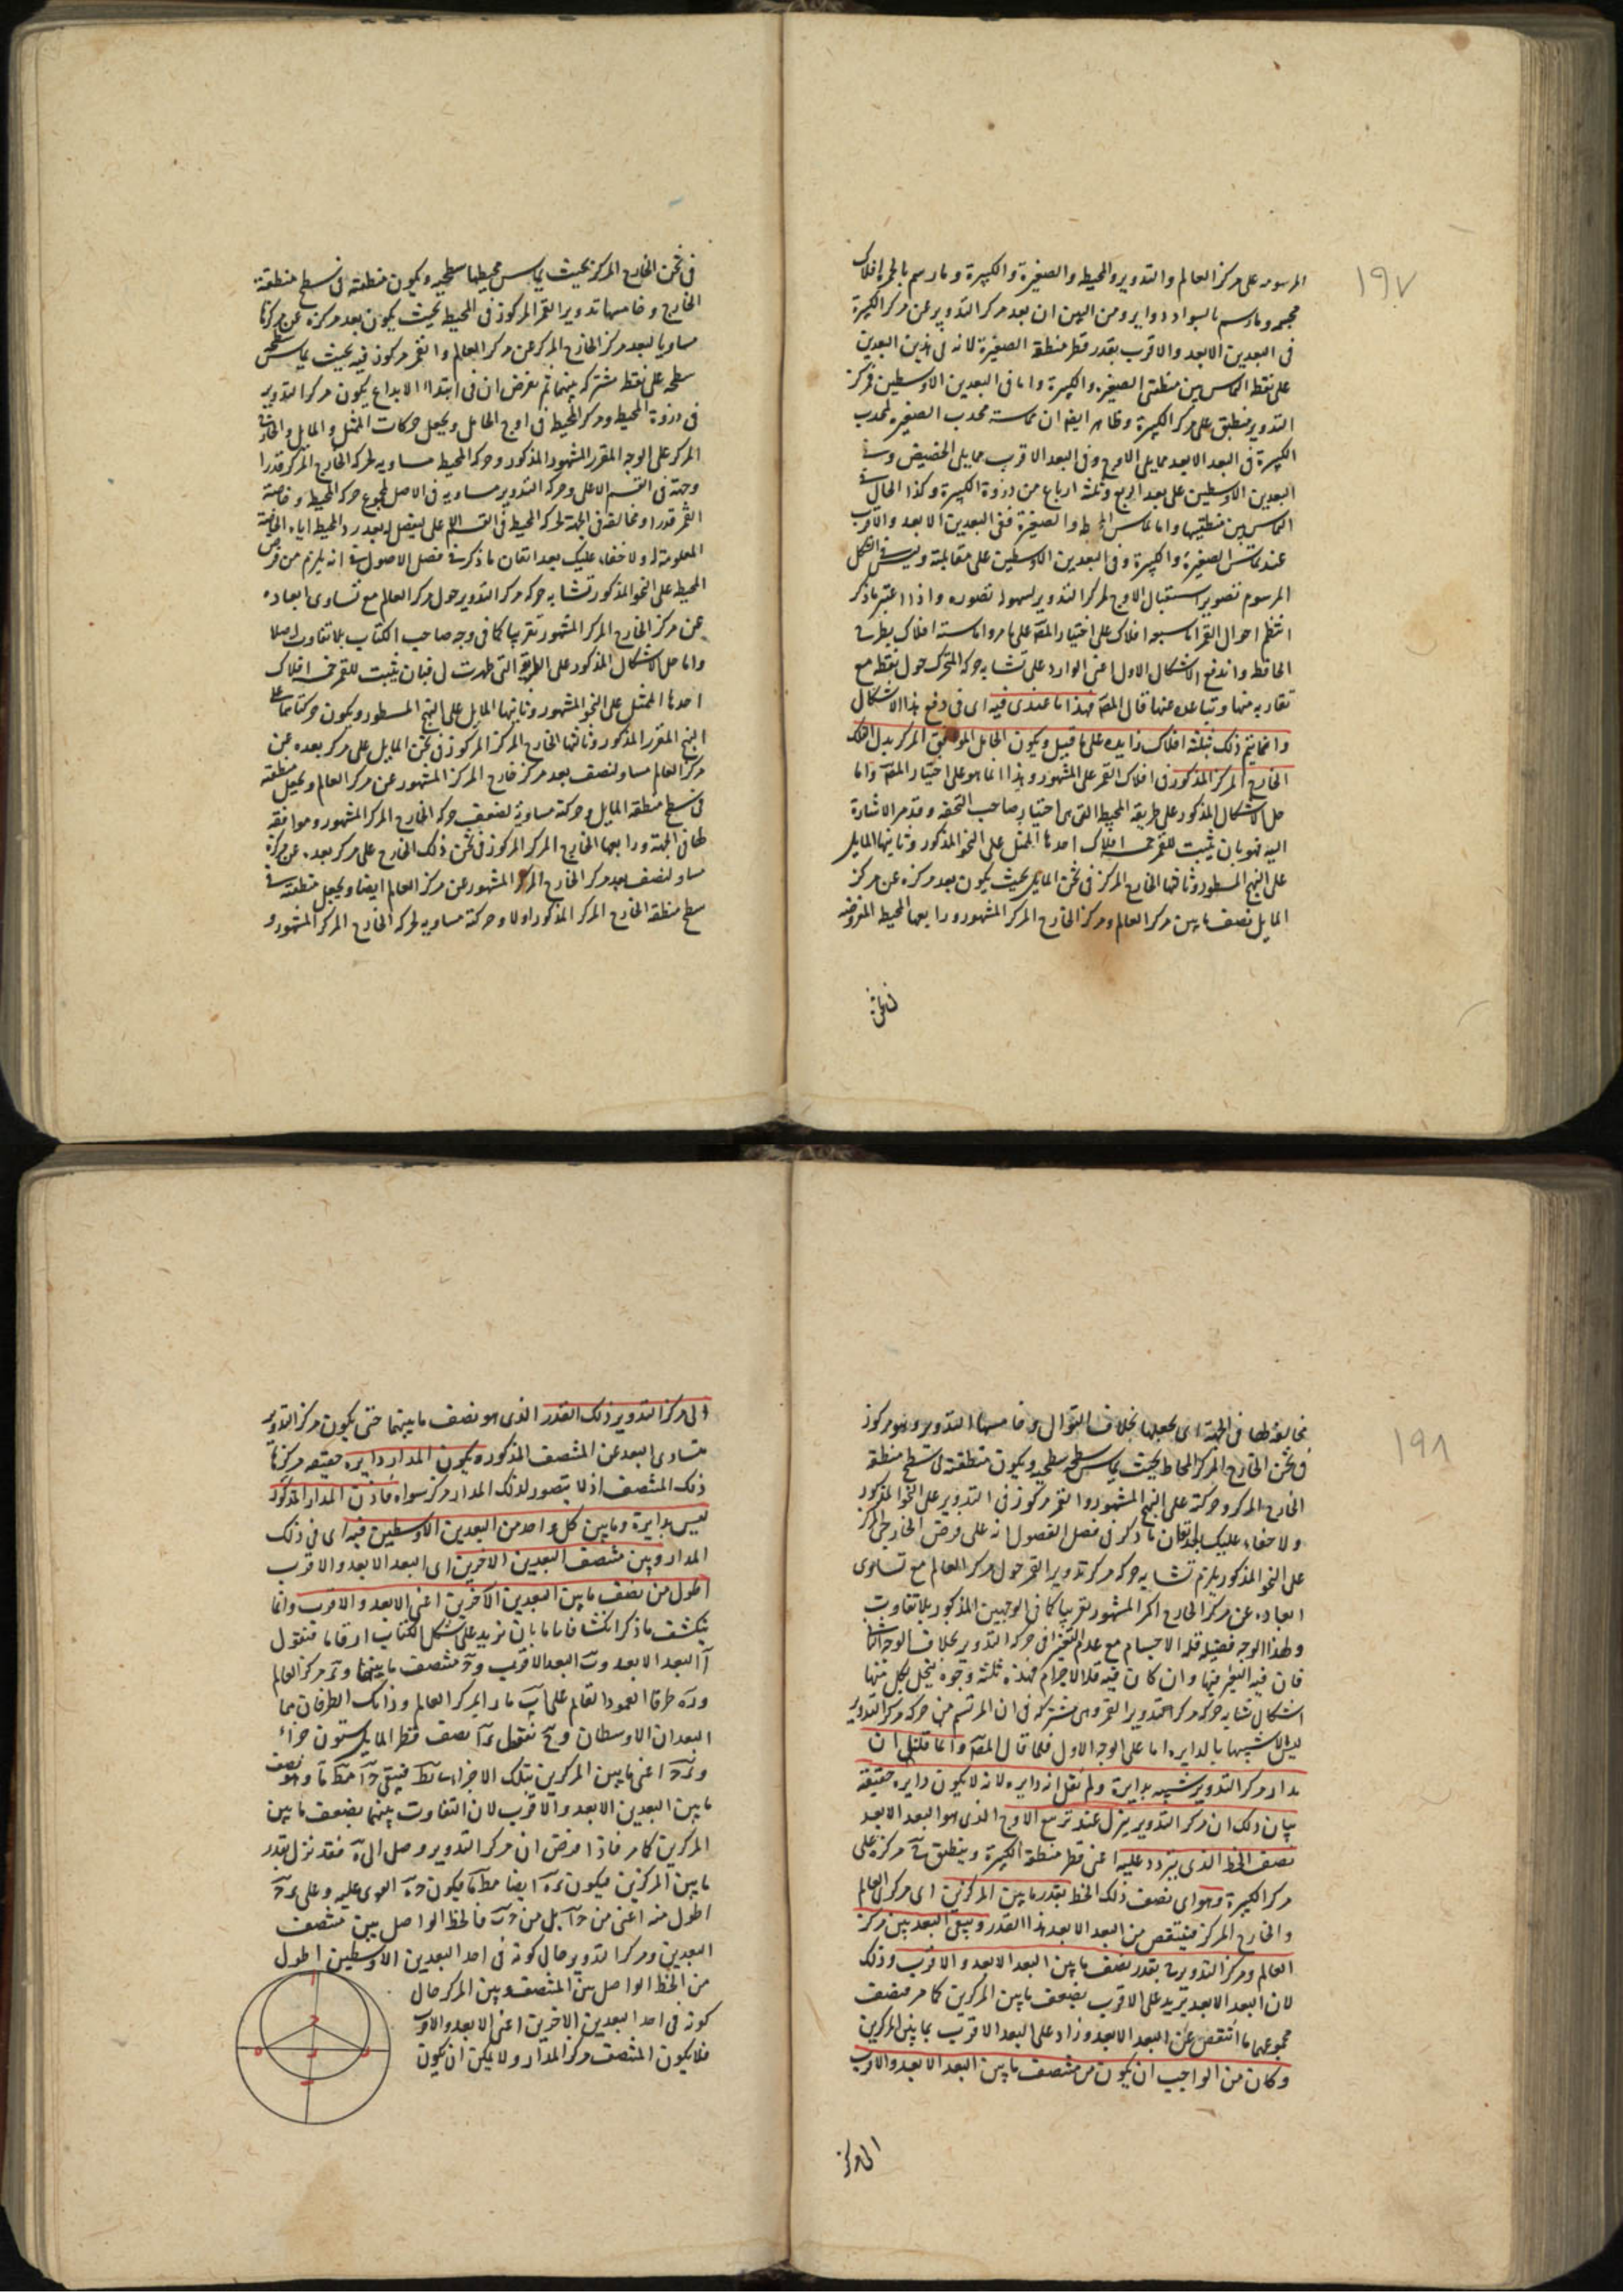 ١٩٧
المرسومه على مركز العالم والتدوير والمحيط والصغيرة والكبيرة ومارسم بالحمرة افلاك
مجسمه ومارسم بالسواد دواير ومن البين ان بعد مركز التدوير عن مركز الكبيرة
فى البعدين الابعد والاقرب بقدر قطر منطقة الصغيرة لانه فى هذين البعدين
على نقطة التماس بين منطقتى الصغيرة والكبيرة واما فى البعدين الاوسطين فمركز
التدوير منطبق على مركز الكبيرة وظاهر ايضا ان مماسته محدب الصغيرة لمحدب
الكبيرة فى البعد الابعد مما يلى الاوج وفى البعد الاقرب مما يلى الحضيض وفى
البعدين الاوسطين على بعد الربع وثلثه ارباع من ذروة الكبيرة وكذا الحال فى
التماس بين منطقتيهما واما تماس المحيط والصغيرة ففى البعدين الابعد والاقرب
عند تماس الصغيرة والكبيرة وفى البعدين الاوسطين على مقابلته وليس فى الشكل
المرسوم تصوير استقبال الاوج لمركز التدوير لسهولة تصوره واذا اعتبر ما ذكر
انتظم احوال القمر اما سبعة افلاك على اختيار المصه على ما مر واما ستة افلاك بطرح
الحافظ واندفع الاشكال الاول اعنى الوارد على تشابه حركة المتحرك حول نقطة مع
تقاربه منها وتباعده عنها قال المصه فهذا ما عندى فيه اى فى دفع هذا الاشكال
وانما يتم ذلك بثلثة افلاك زايده على ما قيل ويكون الحامل الموافق المركز بدل الفلك
الخارج المركز المذكور فى افلاك القمر على المشهور وهذا انما هو على اختيار المصه واما
حل الاشكال المذكور على طريقة المحيط التى هى اختيار صاحب التحفه وقد مر الاشارة
اليه فهو بان يثبت للقمر خمسة افلاك احدها الممثل على النحو المذكور وثانيها المايل
على النهج المسطور وثالثها الخارج المركز فى ثخن المايل بحيث يكون بعد مركزه عن مركز
المايل نصف ما بين مركز العالم ومركز الخارج المركز المشهور ورابعها المحيط المفروضه
فى ثخن
فى ثخن الخارج المركز بحيث يماس محيطها سطحيه ويكون منطقته فى سطح منطقة
الخارج وخامسها تدوير القمر المركوز فى المحيط بحيث يكون بعد مركزه عن مركزها
مساويا لبعد مركز الخارج المركز عن مركز العالم والقمر مركوز فيه بحيث يماس سطحه
سطحه على نقطة مشتركه بينهما ثم نفرض ان فى ابتداء الابداع يكون مركز التدوير
فى ذروة المحيط ومركز المحيط فى اوج الحامل ويجعل حركات الممثل والمايل والخارج
المركز على الوجه المقرر المشهور المذكور وحركة المحيط مساويه لحركة الخارج المركز قدرا
وجهة فى القسم الاعلى وحركة التدوير مساويه فى الاصل لمجموع حركة المحيط وخاصة
القمر قدرا ومخالفة فى الجهة لحركة المحيط فى القسم الاعلى ليفضل له بعد رد المحيط اياه الخاصة
المعلومة له ولا خفاء عليك بعد اتقان ما ذكر فى فصل الاصول فى انه يلزم من فرض
المحيط على النحو المذكور تشابه حركة مركز التدوير حول مركز العالم مع تساوى ابعاده
عن مركز الخارج المركز المشهور تقريبا كما فى وجه صاحب الكتاب بلا تفاوت اصلا
واما حل الاشكال المذكور على الطريقة التى ظهرت لى فبان يثبت للقمر خمسة افلاك
احدها الممثل على النحو المشهور وثانيها المايل على النهج المسطور ويكون حركتاهما على
النهج المقرر المذكور وثالثها الخارج المركز المركوز فى ثخن المايل على مركز بعده عن
مركز العالم مساو لنصف بعد مركز خارج المركز المشهور عن مركز العالم ويجعل منطقته
فى سطح منطقة المايل وحركته مساوية لضعف حركة الخارج المركز المشهور وموافقه
لها فى الجهة ورابعها الخارج المركز المركوز فى ثخن ذلك الخارج على مركز بعده عن مركزه
مساو لنصف بعد مركز الخارج المركز المشهور عن مركز العالم ايضا ويجعل منطقته فى
سطح منطقة الخارج المركز المذكور اولا وحركته مساويه لحركة الخارج المركز المشهور و
١٩٨
مخالفة لها فى الجهة اى يجعلها بخلاف التوالى وخامسها التدوير وهو مركوز
فى ثخن الخارج المركز المحاط بحيث يماس سطحه سطحيه ويكون منطقته فى سطح منطقة
الخارج المركز وحركته على النهج المشهور والقمر مركوز فى التدوير على النحو المذكور
ولا خفاء عليك بعد اتقان ما ذكر فى فصل الفصول انه على فرض الخارجى المركز
على النحو المذكور يلزم تشابه حركة مركز تدوير القمر حول مركز العالم مع تساوى
ابعاده عن مركز الخارج المركز المشهور تقريبا كما فى الوجهين المذكور بلا تفاوت
ولهذا الوجه فضيلة قلة الاجسام مع عدم التغير فى حركة التدوير بخلاف الوجه الثانى
فان فيه التغير فيها وان كان فيه قلة الاجرام فهذه ثلثة وجوه ينحل بكل منها
اشكال تشابه حركة مركز تدوير القمر وهى مشتركه فى ان المرتسم من حركة مركز التدوير
ليس الا شبيها بالدايره اما على الوجه الاول فلما قال المصه وانما قلنا ان
مدار مركز التدوير شبيه بدايرة ولم نقل انه دايره لانه لا يكون دايره حقيقة
بيان ذلك ان مركز التدوير ينزل عند تربيع الاوج الذى هو البعد الابعد
نصف الخط الذى يتردد عليه اعنى قطر منطقة الكبيرة وينطبق فيه مركزه على
مركز الكبيرة وهو اى نصف ذلك الخط بقدر ما بين المركزين اى مركزى العالم
والخارج المركز فينتقص من البعد الابعد هذا القدر ويبقى البعد بين مركز
العالم ومركز التدوير فيه بقدر نصف ما بين البعد الابعد والاقرب وذلك
لان البعد الابعد يزيد على الاقرب بضعف ما بين المركزين كما مر فنصف
مجموعهما ما انتقص عن البعد الابعد وزاد على البعد الاقرب بما بين المركزين
وكان من الواجب ان يكون من منتصف ما بين البعد الابعد والاقرب
الى مركز
الى مركز التدوير ذلك القدر الذى هو نصف ما بينهما حتى يكون مركز التدوير
متساوى البعد عن المنتصف المذكور ويكون المدار دايره حقيقه مركزها
ذلك المنتصف اذ لا يتصور لذلك المدار مركز سواه فاذن المدار المذكور
ليس بدايرة وما بين كل واحد من البعدين الاوسطين فيه اى فى ذلك
المدار وبين منتصف البعدين الاخرين اى البعد الابعد والاقرب
اطول من نصف ما بين البعدين الاخرين اعنى الابعد والاقرب وانما
ينكشف ما ذكر انكشافا تاما بان نزيد على شكل الكتاب ارقاما فنقول
آ البعد الابعد وب البعد الاقرب وح منتصف ما بينهما وى مركز العالم
وده طرفا العمود القايم على آب مارا بمركز العالم وذانك الطرفان هما
البعدان الاوسطان وح نقول ىآ نصف قطر المايل ستون جزاء
وىح اعنى ما بين المركزين بتلك الاجزاء يط فيبقى حآ مط ما وهو نصف
ما بين البعدين الابعد والاقرب لان التفاوت بينهما بضعف ما بين
المركزين كما مر فاذا فرض ان مركز التدوير وصل الى ه فقد نزل بقدر
ما بين المركزين فيكون ىه ايضا مط ما فيكون حه القوى عليه وعلى ىح
اطول منه اعنى من حآ بل من حب فالخط الواصل بين منتصف
البعدين ومركز التدوير حال كونه فى احد البعدين الاوسطين اطول
من الخط الواصل بين المنتصف وبين المركز حال
كونه فى احد البعدين الاخرين اعنى الابعد والاقرب
فلا يكون المنتصف مركز المدار ولا يمكن ان يكون